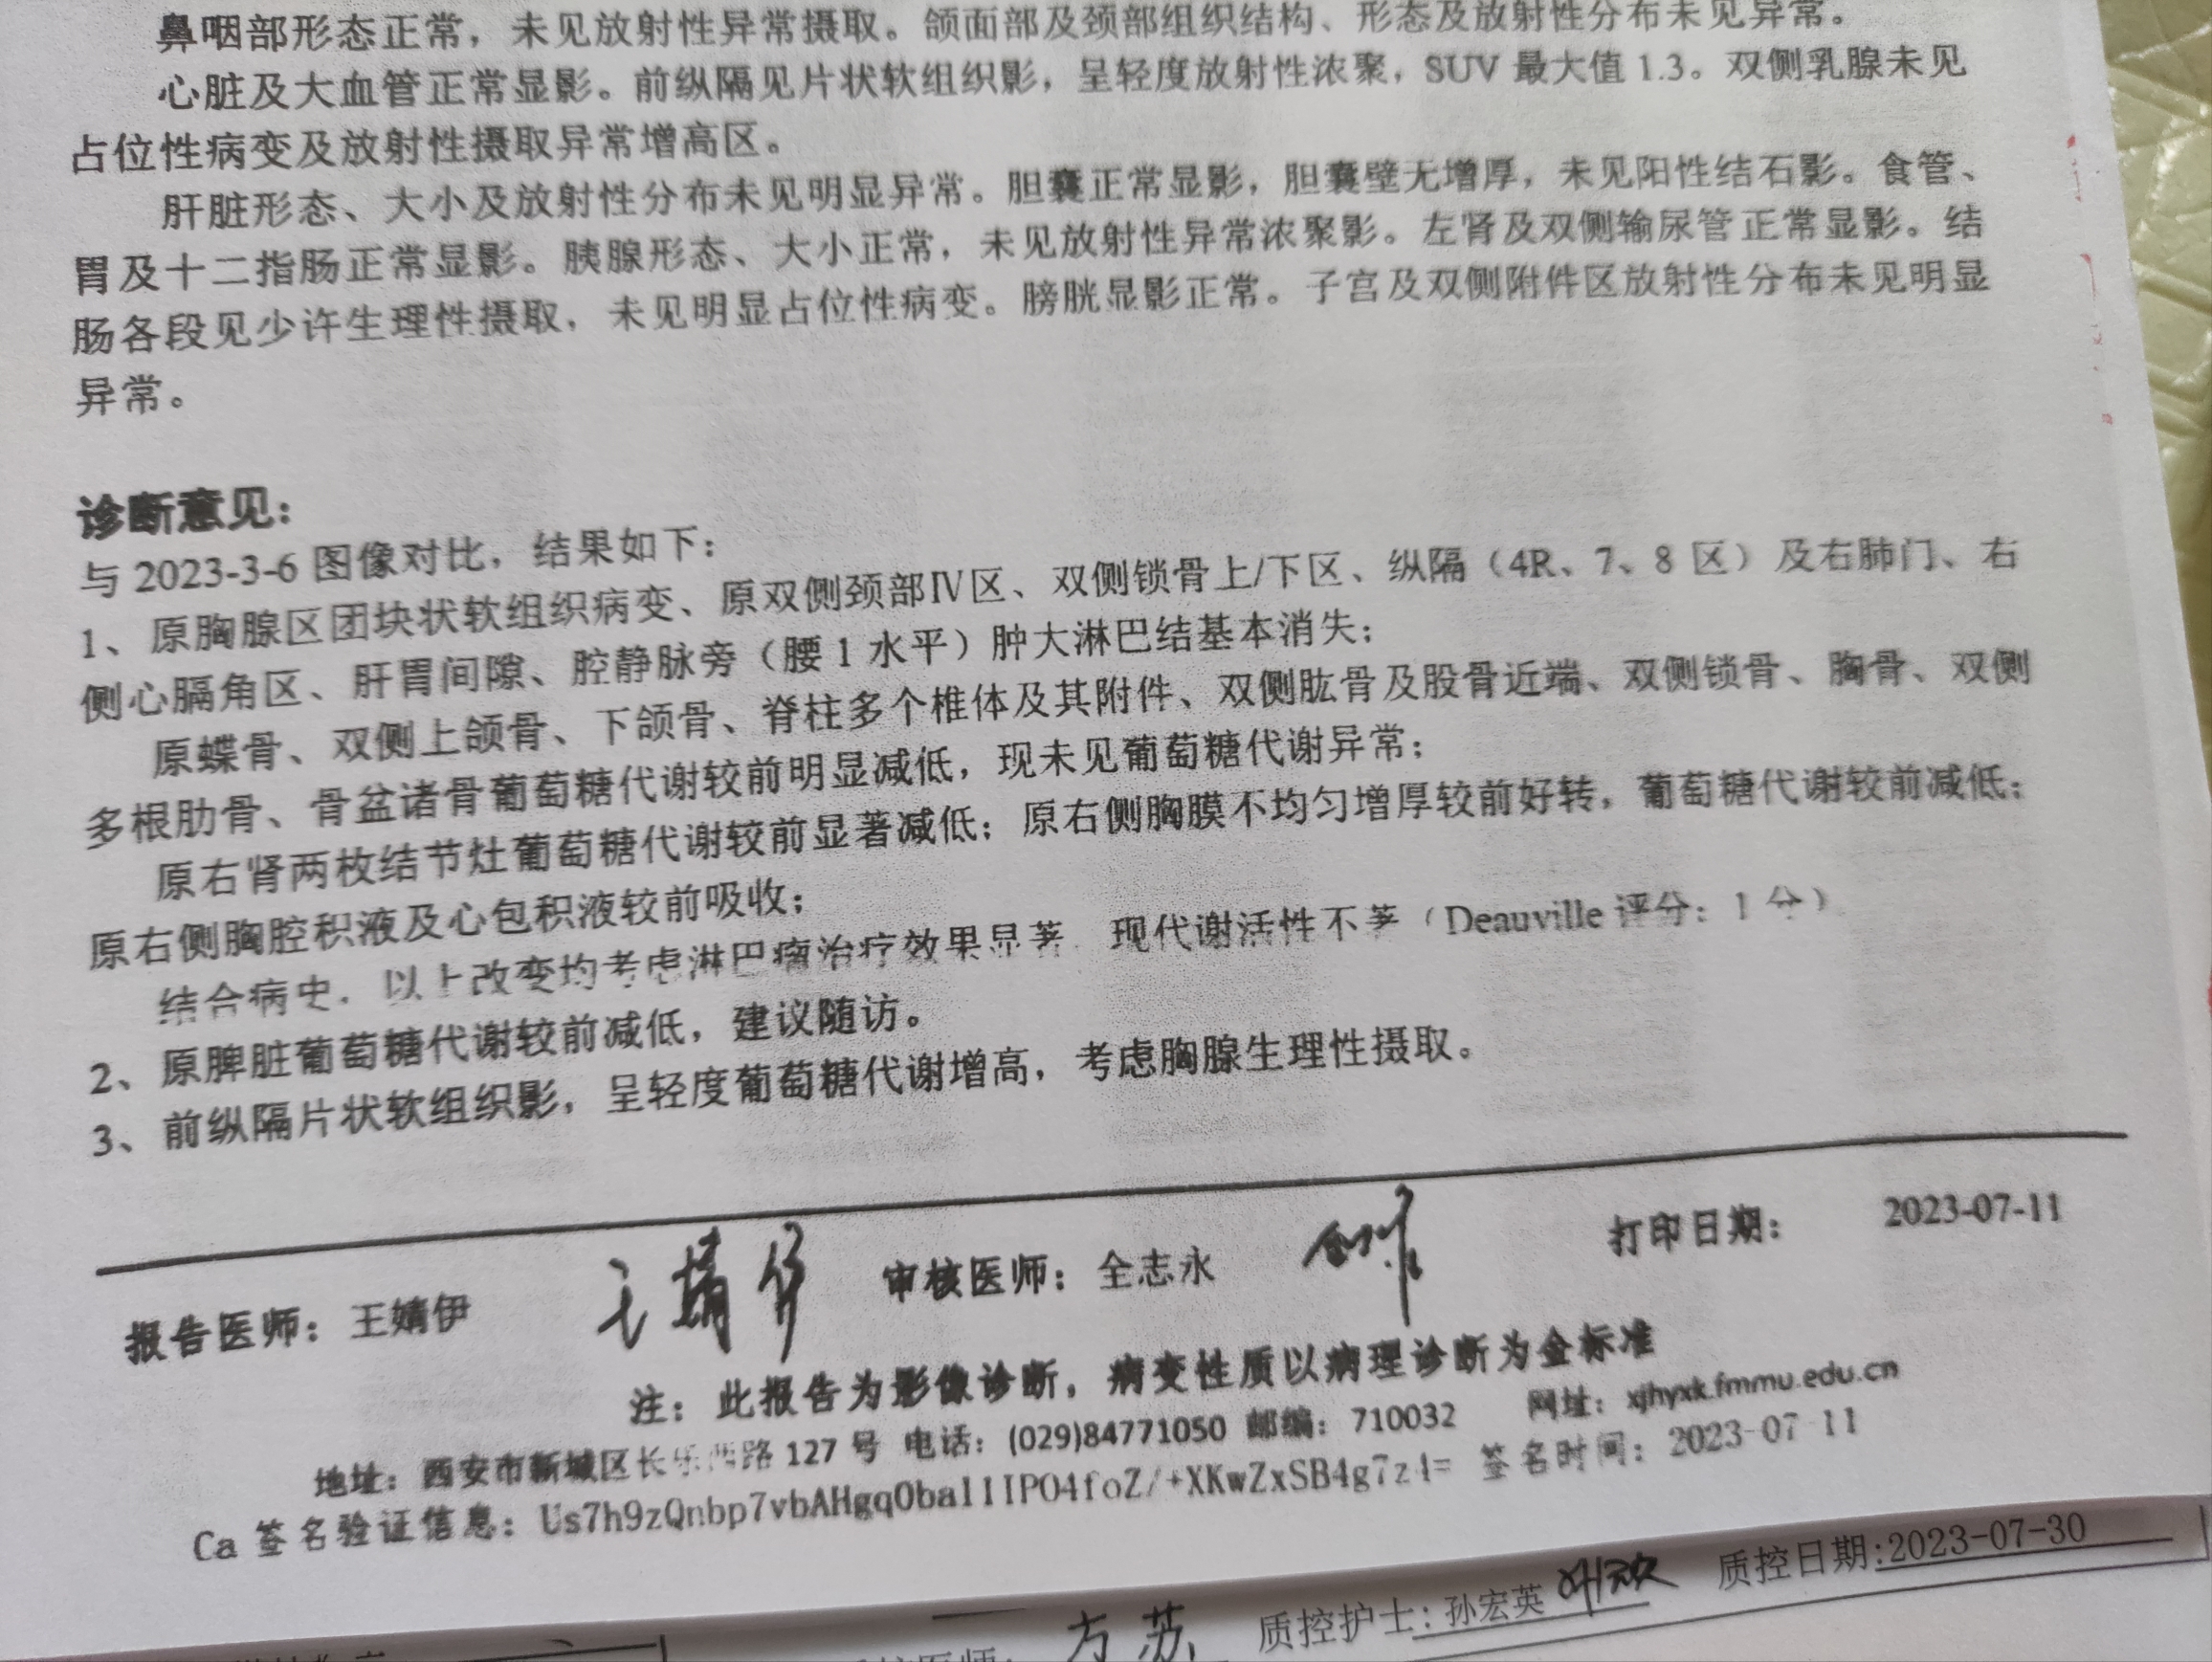 鼻咽部形态正常，未见放射性异常摄取。颌面部及颈部组织结构、形态及放射性分布未见异常。
心脏及大血管正常显影。前纵隔见片状软组织影，呈轻度放射性浓聚，SUV 最大值 1.3。双侧乳腺未见
占位性病变及放射性摄取异常增高区。
肝脏形态、大小及放射性分布未见明显异常。胆囊正常显影，胆囊壁无增厚，未见阳性结石影。食管、
胃及十二指肠正常显影。胰腺形态、大小正常，未见放射性异常浓聚影。左肾及双侧输尿管正常显影。结
肠各段见少许生理性摄取，未见明显占位性病变。膀胱显影正常。子宫及双侧附件区放射性分布未见明显
异常。
诊断意见：
与 2023-3-6 图像对比，结果如下：
1、原胸腺区团块状软组织病变、原双侧颈部Ⅳ区、双侧锁骨上/下区、纵隔（4R、7、8 区）及右肺门、右
侧心膈角区、肝胃间隙、腔静脉旁（腰 1 水平）肿大淋巴结基本消失；
原蝶骨、双侧上颌骨、下颌骨、脊柱多个椎体及其附件、双侧肱骨及股骨近端、双侧锁骨、胸骨、双侧
多根肋骨、骨盆诸骨葡萄糖代谢较前明显减低，现未见葡萄糖代谢异常；
原右肾两枚结节灶葡萄糖代谢较前显著减低；原右侧胸膜不均匀增厚较前好转，葡萄糖代谢较前减低；
原右侧胸腔积液及心包积液较前吸收；
结合病史，以上改变均考虑淋巴瘤治疗效果显著，现代谢活性不著（Deauville 评分：1 分）
2、原脾脏葡萄糖代谢较前减低，建议随访。
3、前纵隔片状软组织影，呈轻度葡萄糖代谢增高，考虑胸腺生理性摄取。
报告医师：王婧伊 王婧伊 审核医师：全志永 打印日期： 2023-07-11
注：此报告为影像诊断，病变性质以病理诊断为金标准
地址：西安市新城区长乐西路 127 号 电话：(029)84771050 邮编：710032 网址：xjhyxk.fmmu.edu.cn
Ca 签名验证信息：Us7h9zQnbp7vbAHgq0ba111PO4foZ/+XKwZxSB4g7z4= 签名时间：2023-07-11
方苏 质控护士：孙宏英 质控日期:2023-07-30